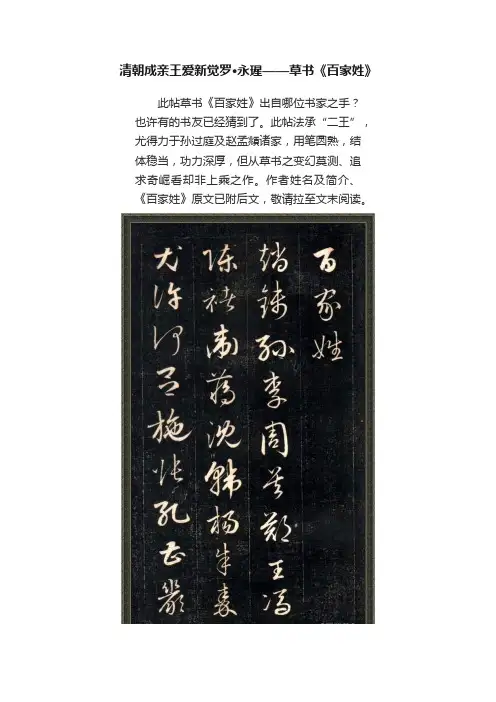 清朝成亲王爱新觉罗•永瑆——草书《百家姓》
此帖草书《百家姓》出自哪位书家之手？
也许有的书友已经猜到了。此帖法承“二王”，
尤得力于孙过庭及赵孟頫诸家，用笔圆熟，结
体稳当，功力深厚，但从草书之变幻莫测、追
求奇崛看却非上乘之作。作者姓名及简介、
《百家姓》原文已附后文，敬请拉至文末阅读。
百家姓
趙錢孫李周吴鄭王馮
陳褚衛蒋沈韓楊朱秦
尤許何吕施張孔曹嚴